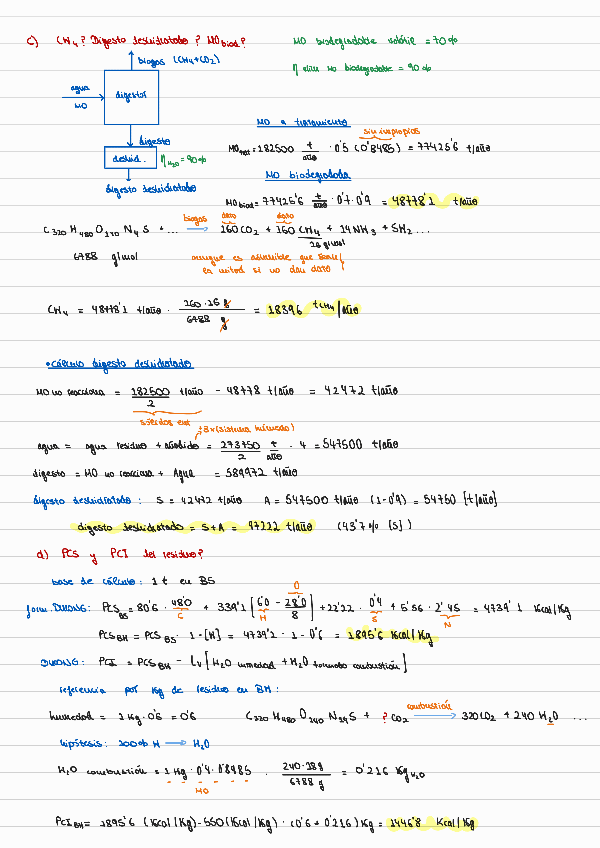 c) CH4? Digesto deshidratado? MO biod? MO biodegradable volátil = 70%
biogas (CH4+CO2)
η elim MO biodegradable = 90%
agua
MO
digestor
MO a tratamiento
sin impropios
digesto
MO tot = 182500 t/año · 0'5 (0'8485) = 77425'6 t/año
deshid. η H2O = 90%
MO biodegradada
digesto deshidratado
MO biod = 77425'6 t/año · 0'7 · 0'9 = 48778'1 t/año
biogas dato dato
C320 H480 O170 N4 S + ... → 160 CO2 + 160 CH4 + 14 NH3 + SH2 ...
16 g/mol
6788 g/mol aunque es asumible que sale
la mitad si no dan dato
CH4 = 48778'1 t/año · 160·16 g / 6788 g = 18396 t CH4/año
• Cálculo digesto deshidratado
MO no reacciona = 182500/2 t/año - 48778 t/año = 42472 t/año
sólidos ent
(sistema húmedo)
agua = agua residuo + añadido = 273750/2 t/año · 4 = 547500 t/año
digesto = MO no reacciona + Agua = 589972 t/año
digesto deshidratado: S = 42472 t/año A = 547500 t/año (1-0'9) = 54750 [t/año]
digesto deshidratado = S+A = 97222 t/año (43'7% [S])
d) PCS y PCI del residuo?
base de cálculo: 1 t en BS
O
form. DULONG: PCS BS = 80'6 · 48'0 + 339'1 [6'0 - 28'0/8] + 22'22 · 0'4 + 5'56 · 2'45 = 4739'1 Kcal/Kg
C H S N
PCS BH = PCS BS · 1-[H] = 4739'2 · 1-0'6 = 1895'6 Kcal/Kg
DULONG: PCI = PCS BH - Lv [H2O humedad + H2O formada combustión]
referencia por Kg de residuo en BH:
combustión
humedad = 1 Kg · 0'6 = 0'6 C320 H480 O240 N14 S + ? CO2 → 320 CO2 + 240 H2O ...
hipótesis: 100% H → H2O
H2O combustión = 1 Kg · 0'4 · 0'8485 · 240·18 g / 6788 g = 0'216 Kg H2O
MO
PCI BH = 1895'6 (Kcal/Kg) - 550 (Kcal/Kg) · (0'6 + 0'216) Kg = 1446'8 Kcal/Kg